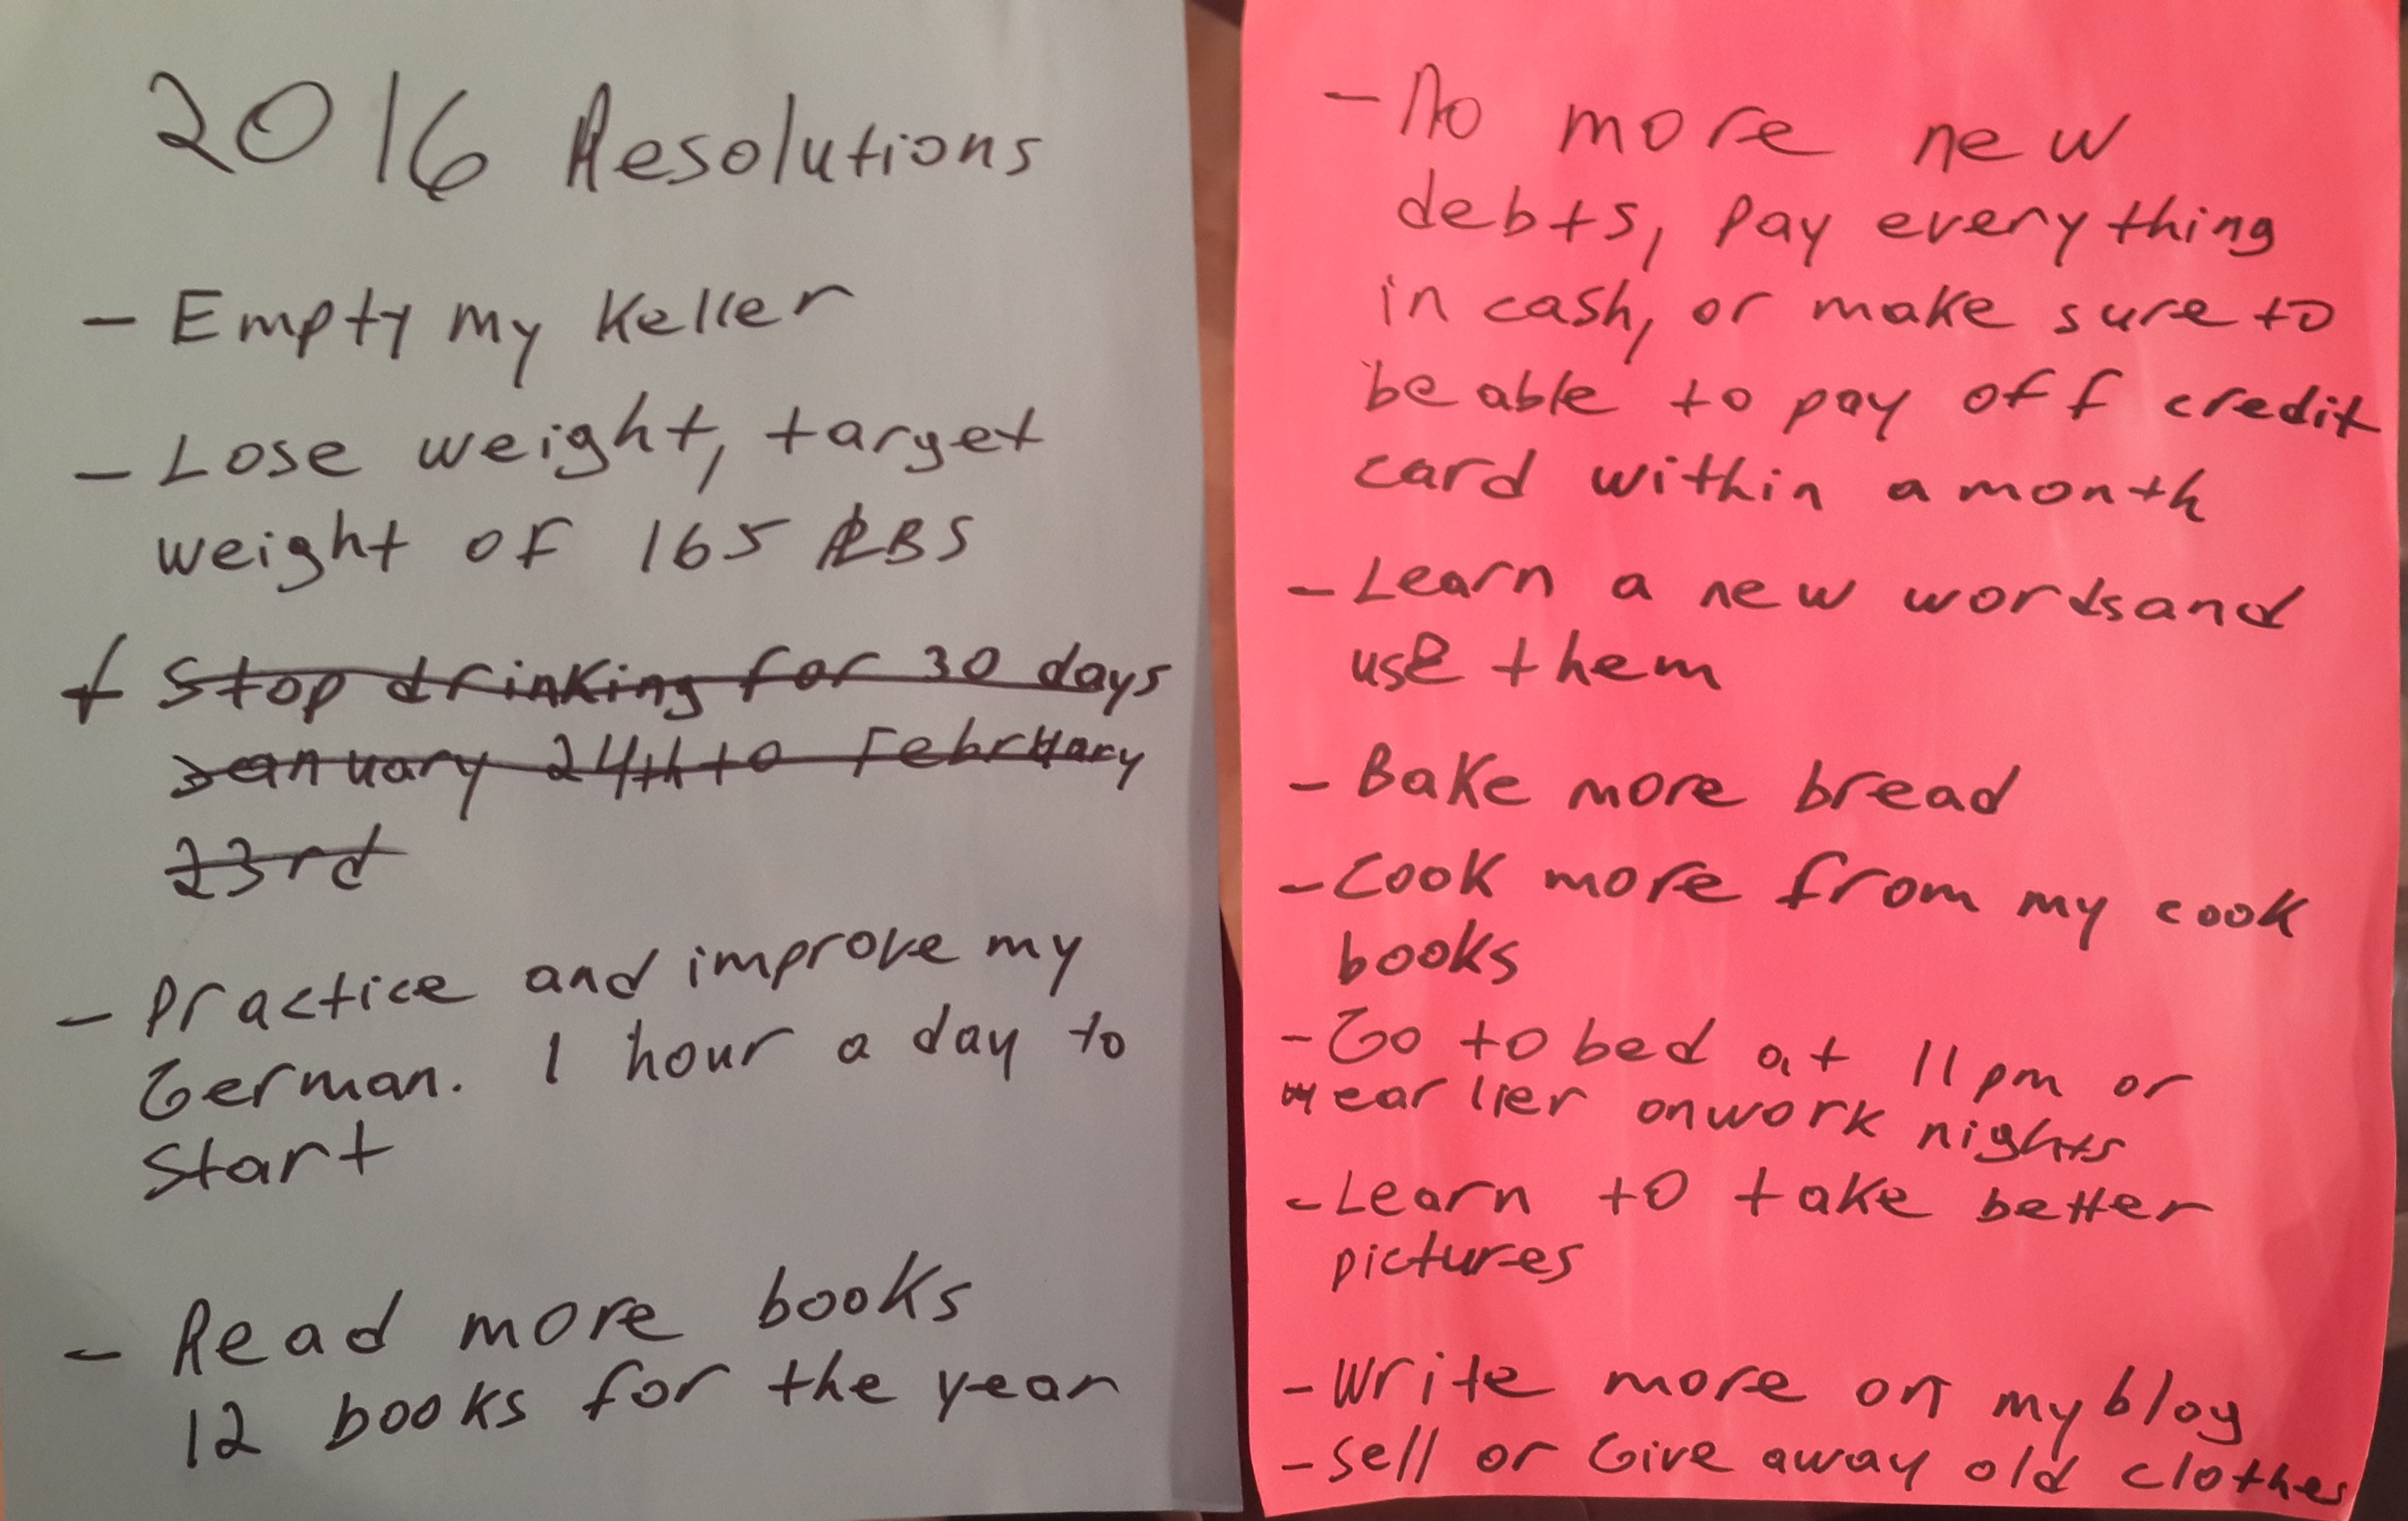 2016 Resolutions
- Empty my Keller
- Lose weight, target
weight of 165 LBS
Stop drinking for 30 days
January 24th to February
23rd
- Practice and improve my
German. 1 hour a day to
Start
- Read more books
12 books for the year
- No more new
debts, pay everything
in cash, or make sure to
be able to pay off credit
card within a month
- Learn a new words and
use them
- Bake more bread
- Cook more from my cook
books
- Go to bed at 11pm or
earlier on work nights
- Learn to take better
pictures
- Write more on my blog
- Sell or Give away old clothes